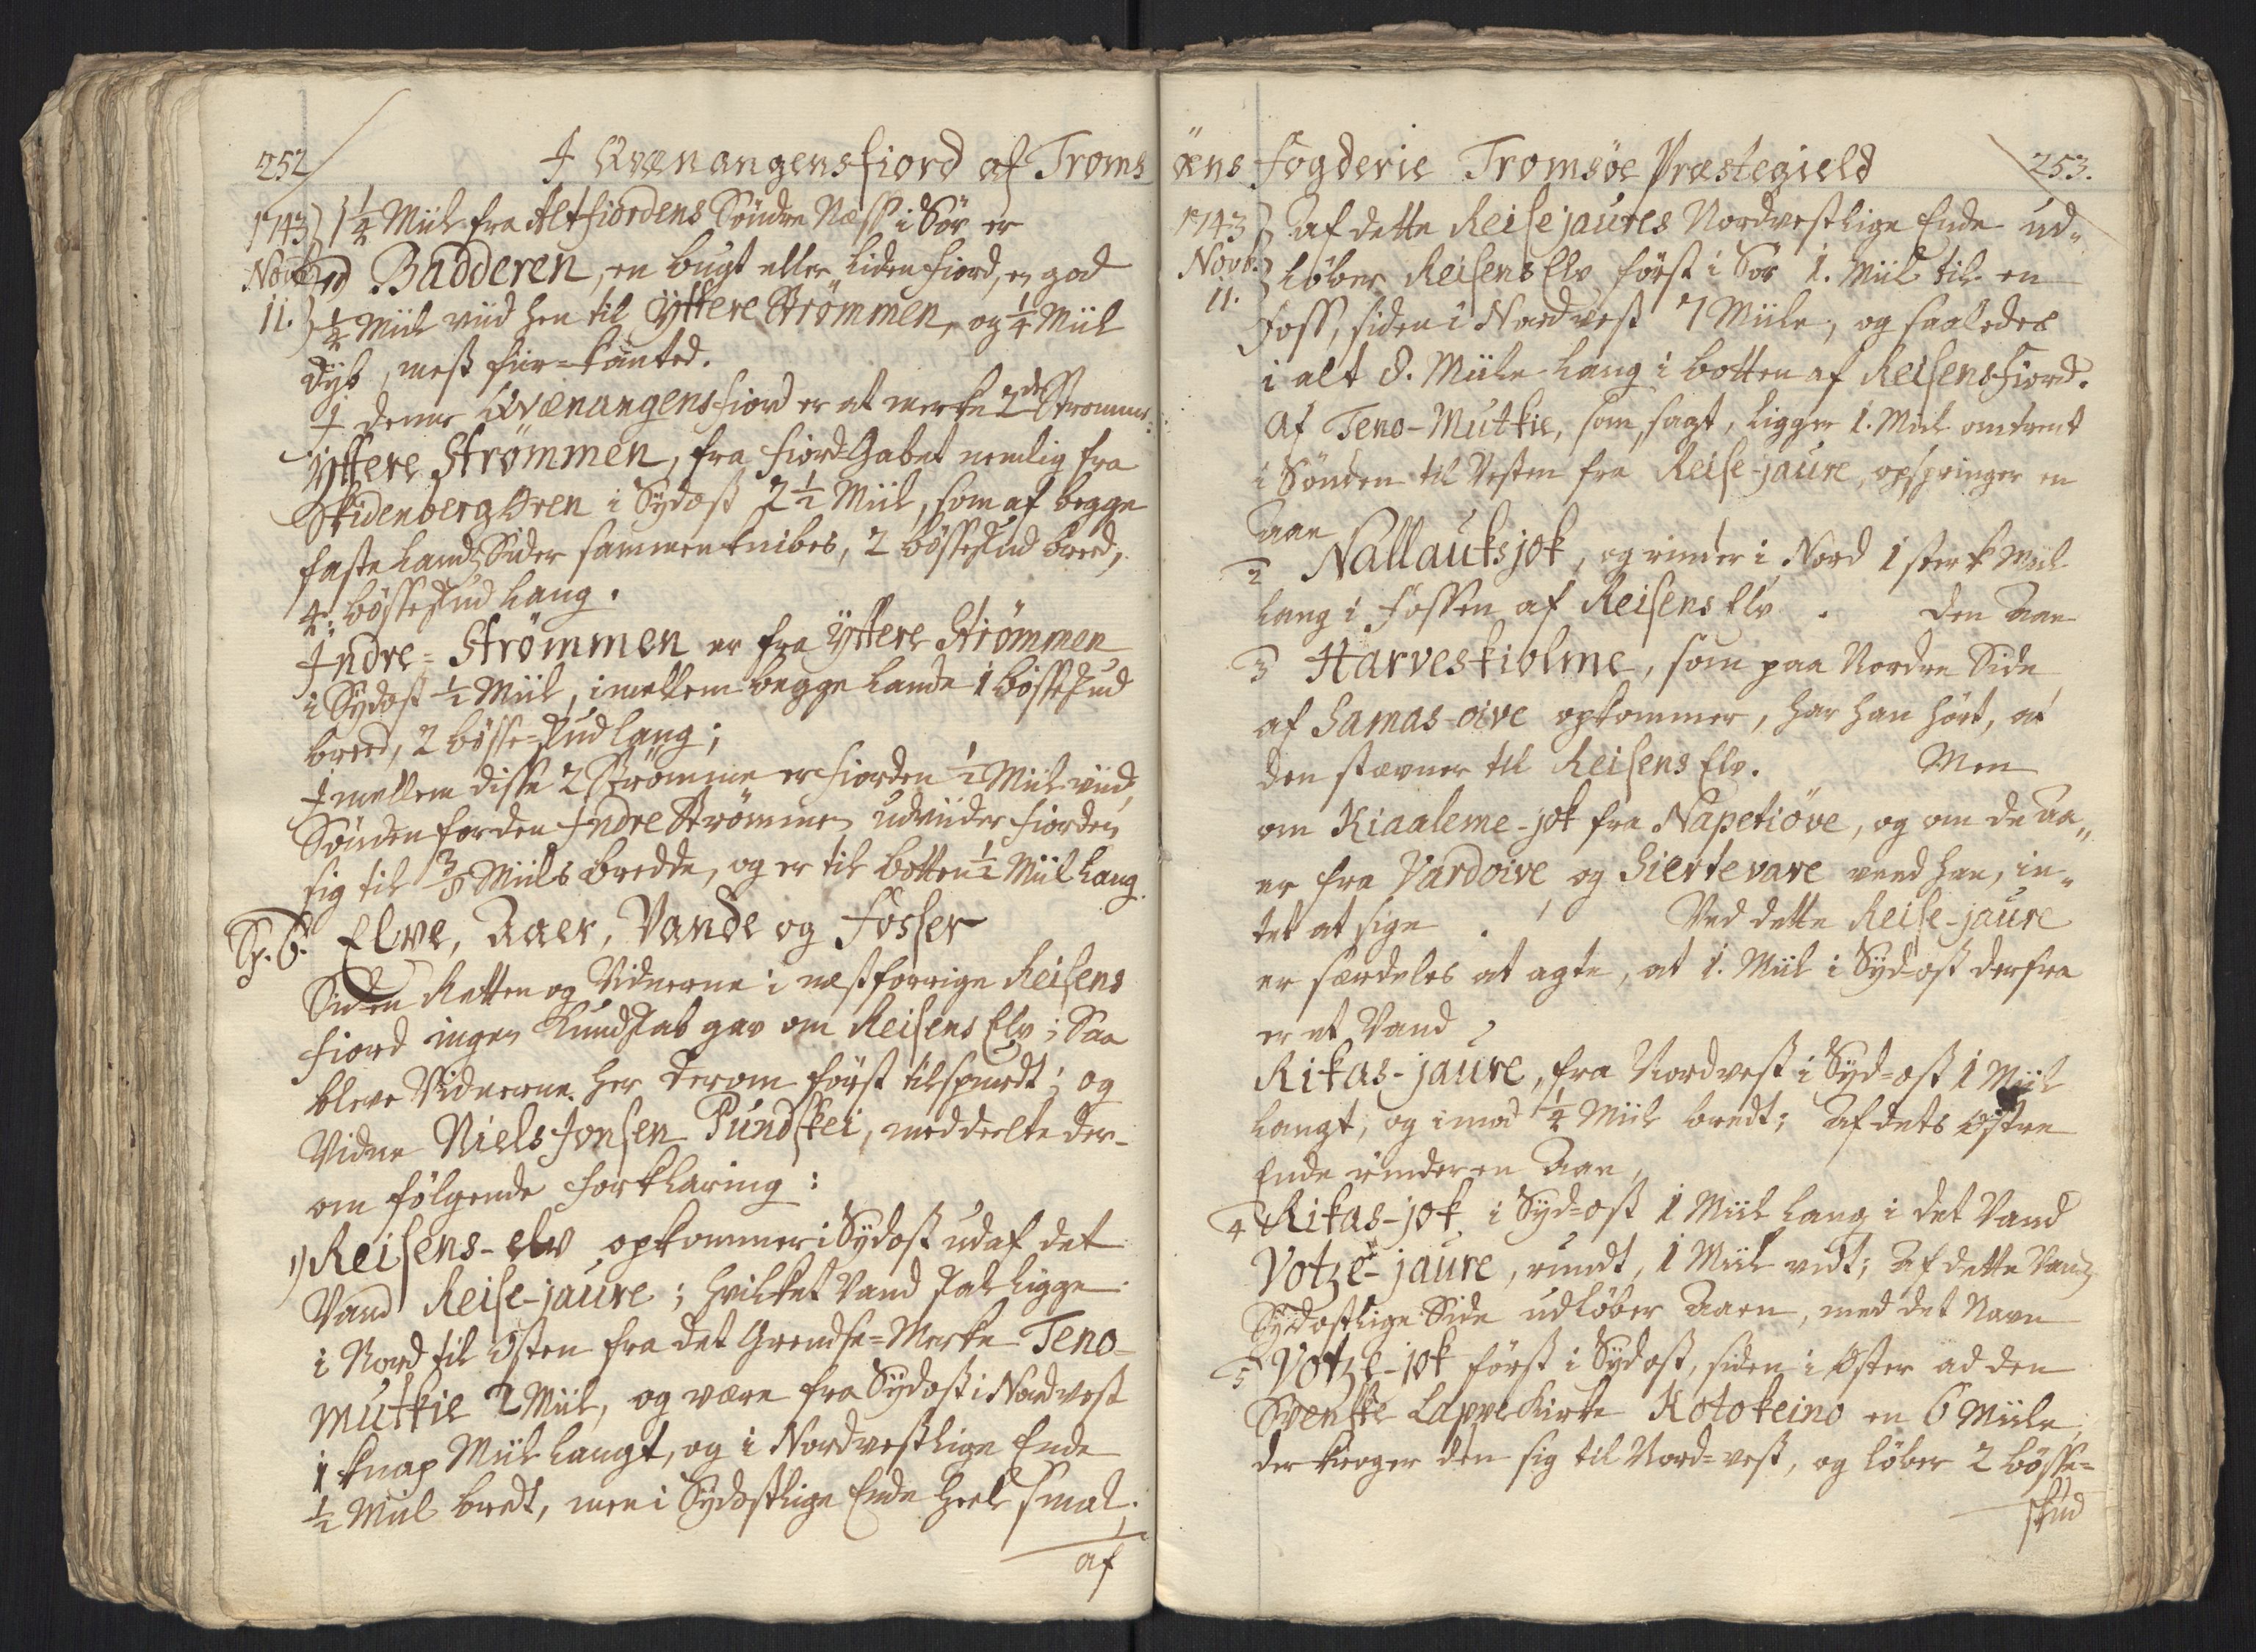 252
I Qvænangensfiord af Troms
1743 } 1 1/4 Miil fra Altfiordens Søndre Næss i Sør er
Novb. } Badderen, en bugt eller liden fiord, en god
11. } 1/4 Miil viid hen til Yttere Strömmen, og 1/4 Miil
dyb, mest fiir=kanted.
I denne Qvænangensfiord er at merke 2de Strømme:
Yttere Strömmen, fra fiord Gabet nemlig fra
Skidenberg Øren i Sydost 2 1/2 Miil, som af begge
faste Lands Sider sammenknibes, 2 bösseskud breed,
4: bösseskud lang.
Indre=Strömmen er fra Yttere Strömmen
i Sydost 1/2 Miil, imellem begge Lande 1 bösseskud
breed, 2 bösse=skud lang;
Imellem disse 2 Strömme er fiorden 1/2 Miil viid,
Sønden for den Indre Strömmen udviider fiorden
sig til 3/8 Miils bredde, og er til botten 1/2 Miil lang.
Sp. 6. Elve, Aaer, Vande og Fosser
Siden Retten og Vidnerne i næstforrige Reisens
fiord ingen Kundskab gav om Reisens Elv; Saa
bleve Vidnerne her derom först tilspurdt; og
Vidne Niels Jonsen Pundskei, meddeelte der-
om fölgende forklaring:
1) Reisens-elv opkommer i Sydost udaf det
Vand Reise-jaure; hvilket Vand skal ligge
i Nord til Østen fra det Grendse=Merke Teno-
Mutkie 2 Miil, og være fra Sydost i Nordvest
1 knap Miil langt, og i Nordvestlige Ende
1/2 Miil bredt, men i Sydostlige Ende heel smal;
af
øens Fogderie Tromsöe Præstegield
253.
1743 } af dette Reisejaures Nordvestlige Ende ud„
Novb. } löber Reisens Elv först i Sör 1. Miil til en
11.
Foss, siden i Nordvest 7 Miile, og saaledes
i alt 8. Miile lang i botten af Reisensfiord.
Af Teno-Mutkie, som, sagt, ligger 1. Miil omtrent
i Sönden til Vesten fra Reise-jaure, opspringer en
Aae
2 Nallauksjok, og rinder i Nord 1 sterk Miil
lang i Fossen af Reisens Elv. Den Aae
3 Harveskiolme, som paa Nordre Side
af Samas-oive opkommer, har han hört, at
den stævner til Reisens Elv. Men
om Kiaaleme-jok fra Napetiöve, og om de Aa„
er fra Vardoive og Siertevare veed han, in„
tet at sige. Ved dette Reise-jaure
er særdeles at agte, at 1. Miil i Syd-ost derfra
er et Vand,
Ritas-jaure, fra Nordvest i Syd=ost 1 Miil
langt, og imod 1/4 Miil bredt; Af dets Østre
Ende rinder en Aae,
4 Ritas-jok i Syd=ost 1 Miil lang i det Vand
Votze-jaure, rundt, 1 Miil vidt; Af dette Vands
Sydostlige Side udlöber Aaen, med det Navn
5 Votze-jok först i Sydost, siden i Øster ad den
Svenske Lappe Kirke Kotokeino en 6 Miile,
der kroger den sig til Nord=vest, og löber 2 bösse=
skud